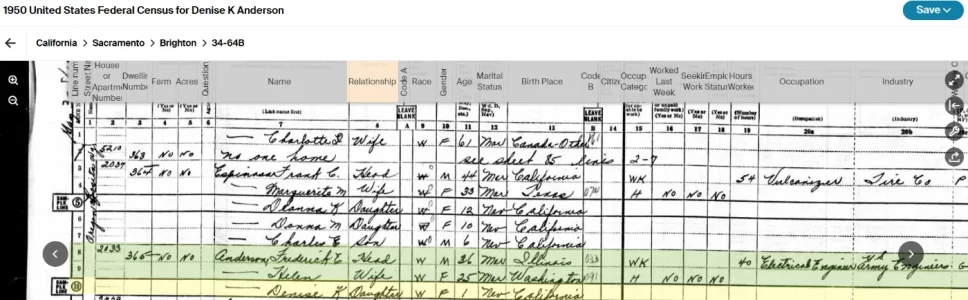 1950 United States Federal Census for Denise K Anderson
Save
California > Sacramento > Brighton > 34-64B
Line num Street Na House or Apartme Number Dwellin Numbe Farm Acres Question Name Relationship Code A Race Gender Age Marital Status Birth Place Code B Citiz Occup Catego Worked Last Week Seekin Work Emplo Status Hours Worked Occupation Industry
(Last name first) LEAVE BLANK LEAVE BLANK (Occupation) (Industry)
1 2 3 4 5 6 7 8 A 9 10 11 12 13 B 14 15 16 17 18 19 20a 20b
1 — Charlotte I Wife W F 61 Mar Canada-Other
2 5210 363 No No no one home see sheet 85 lines 2-7
3 2037 364 No No Espinosa Frank C. Head W M 44 Mar California WK 54 Vulcanizer Tire Co P
4 — Marguerite M Wife W F 33 Mar Texas H No No No
SAMPLE LINE 5 — Deanna K Daughter W F 12 Nev California
6 — Donna M Daughter W F 10 Nev California
7 — Charles E Son W M 6 Nev California
8 2033 365 No No Anderson, Frederick E Head W M 36 Mar Illinois WK 40 Electrical Engineer Army Engineers G
9 — Helen Wife W F 25 Mar Washington H No No No
SAMPLE LINE 10 — Denise K Daughter W F 1 Nev California